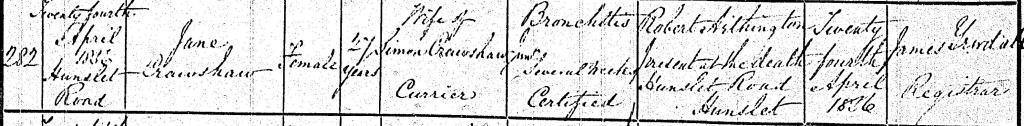 282
Twenty fourth
April
Hunslet
Road
Jane
Crawshaw
Female
27
years
Wife of
Simon Crawshaw
Currier
Bronchitis
Several weeks
Certified
Robert Arthington
Present at the death
Hunslet Road
Hunslet
Twenty
fourth
April
1856
James
Registrar